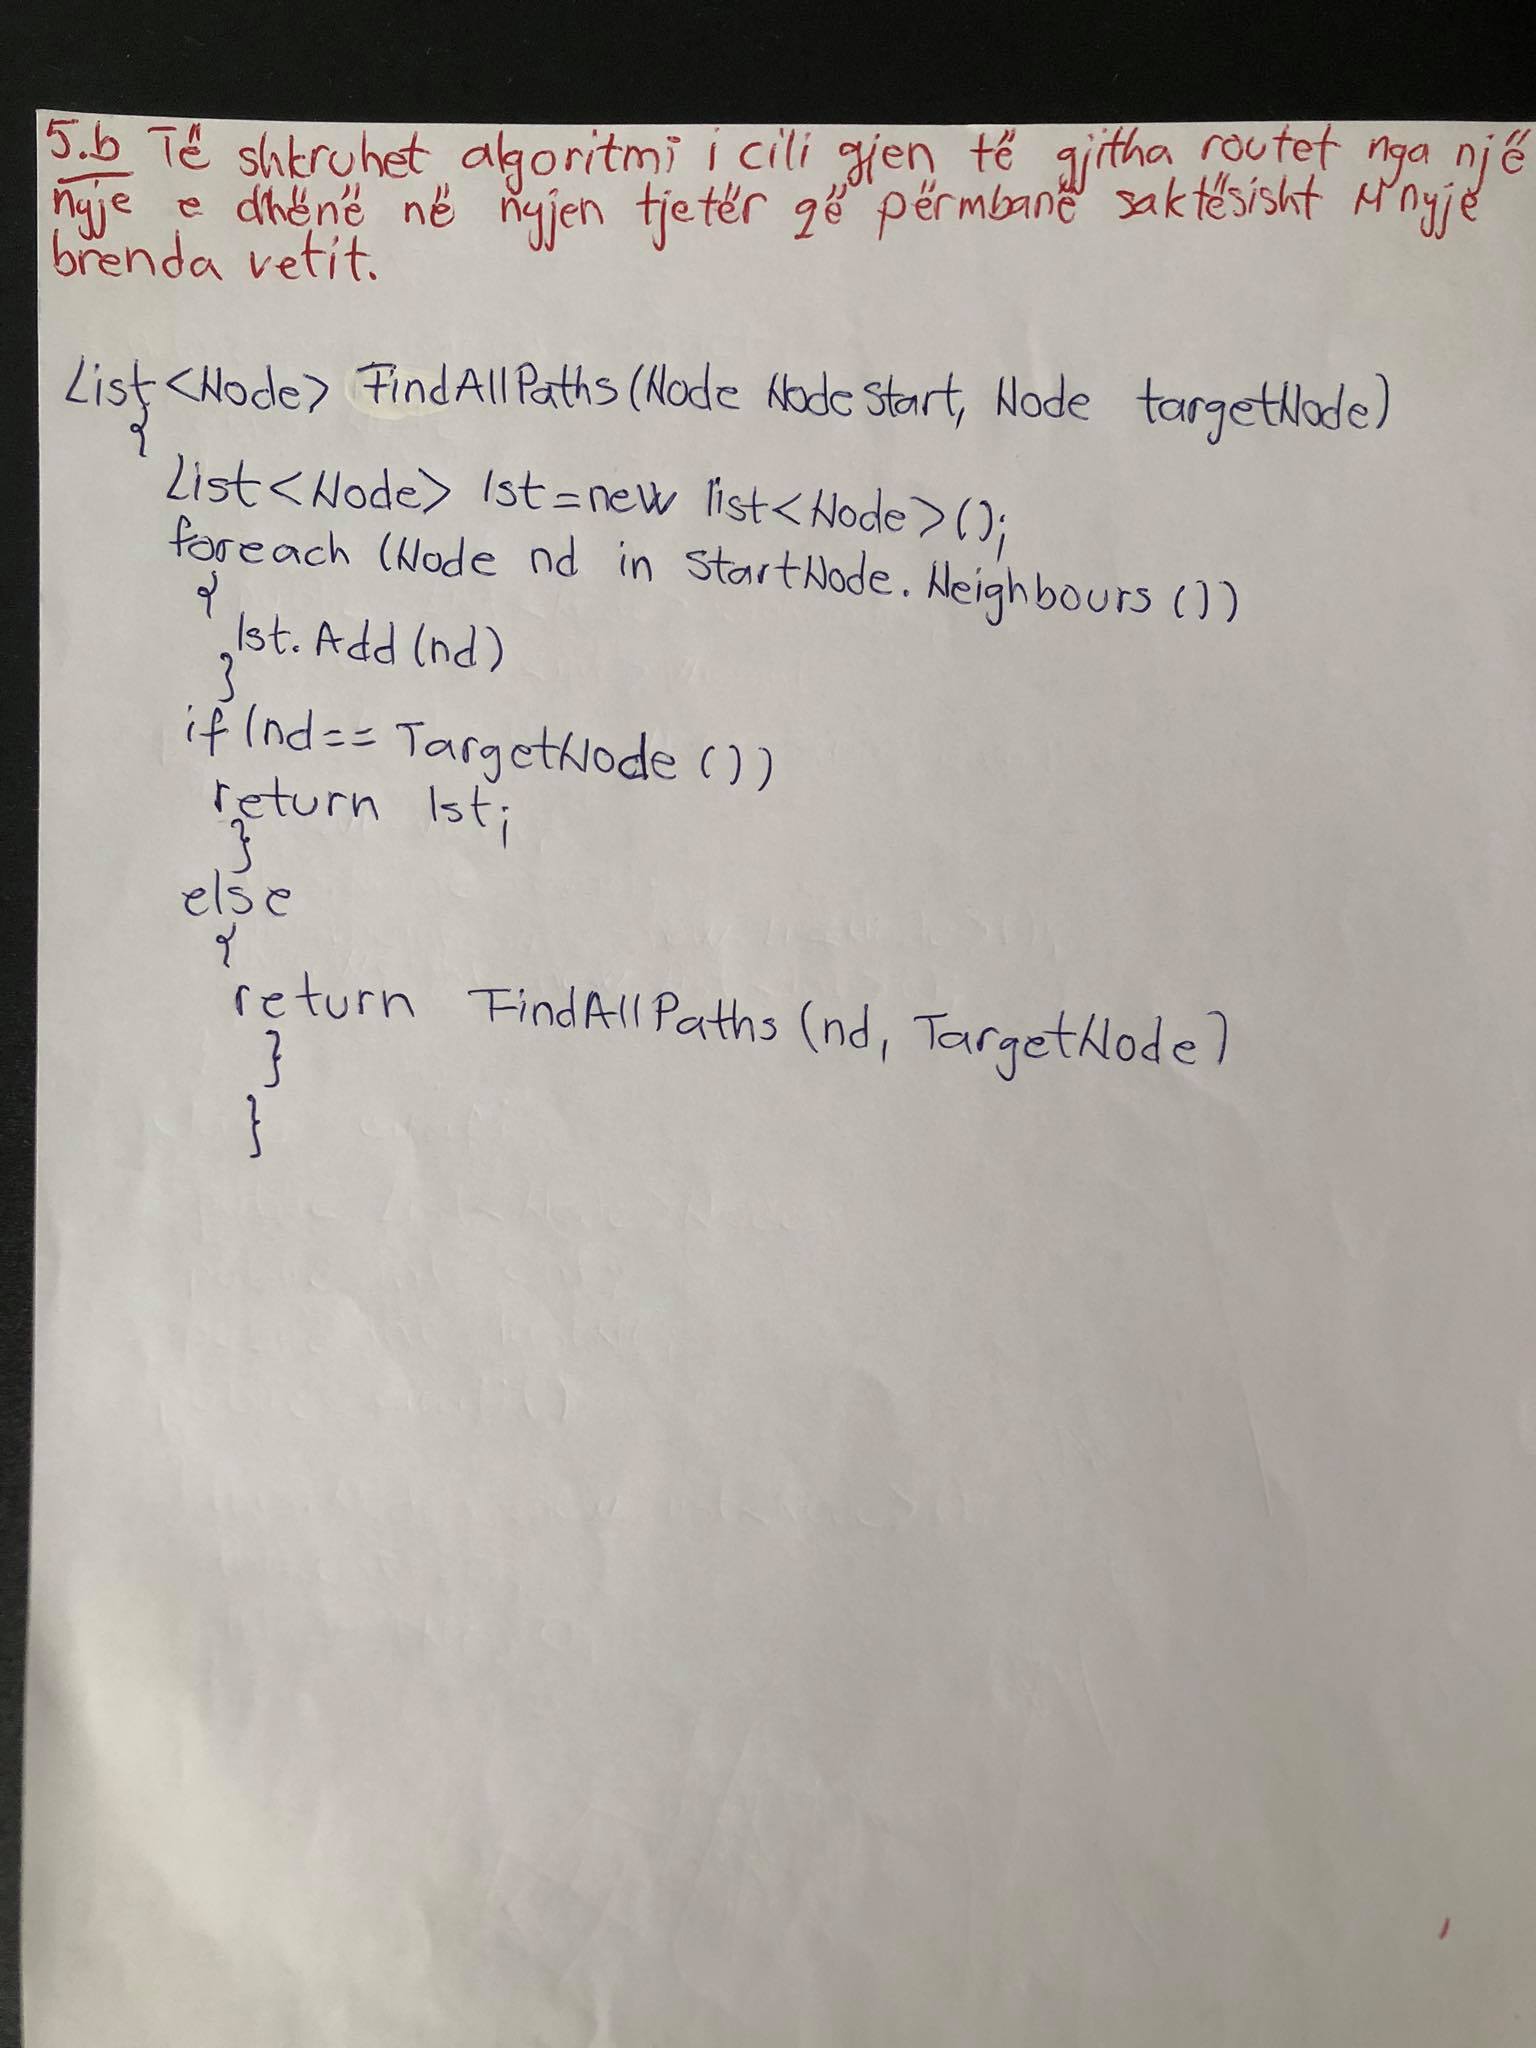 5.b Të shkruhet algoritmi i cili gjen të gjitha routet nga një
nyje e dhënë në nyjen tjetër që përmbanë saktësisht N nyje
brenda vetit.
List<Node> FindAllPaths(Node NodeStart, Node targetNode)
{
List<Node> lst=new list<Node>();
foreach (Node nd in StartNode.Neighbours())
{
lst.Add(nd)
}
if(nd==TargetNode())
return lst;
}
else
{
return FindAllPaths(nd, TargetNode)
}
}